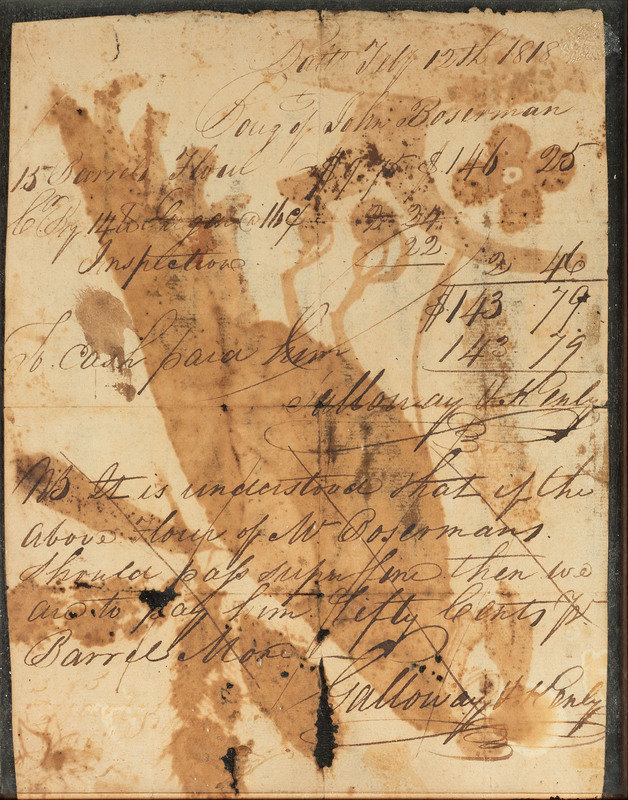 Balto Feby 12th 1818
Boug of John Boserman
15 Barrels Flour $9 75 $146 25
14 @ 16 2 34
Inspection 22 2 46
$143 79
To cash paid him 143 79
Galloway & Henly
NB It is understood that if the
above Flour of Mr Bosermans
should pass superfine then we
are to pay him Fifty Cents pr
Barrel More
Galloway & Henly